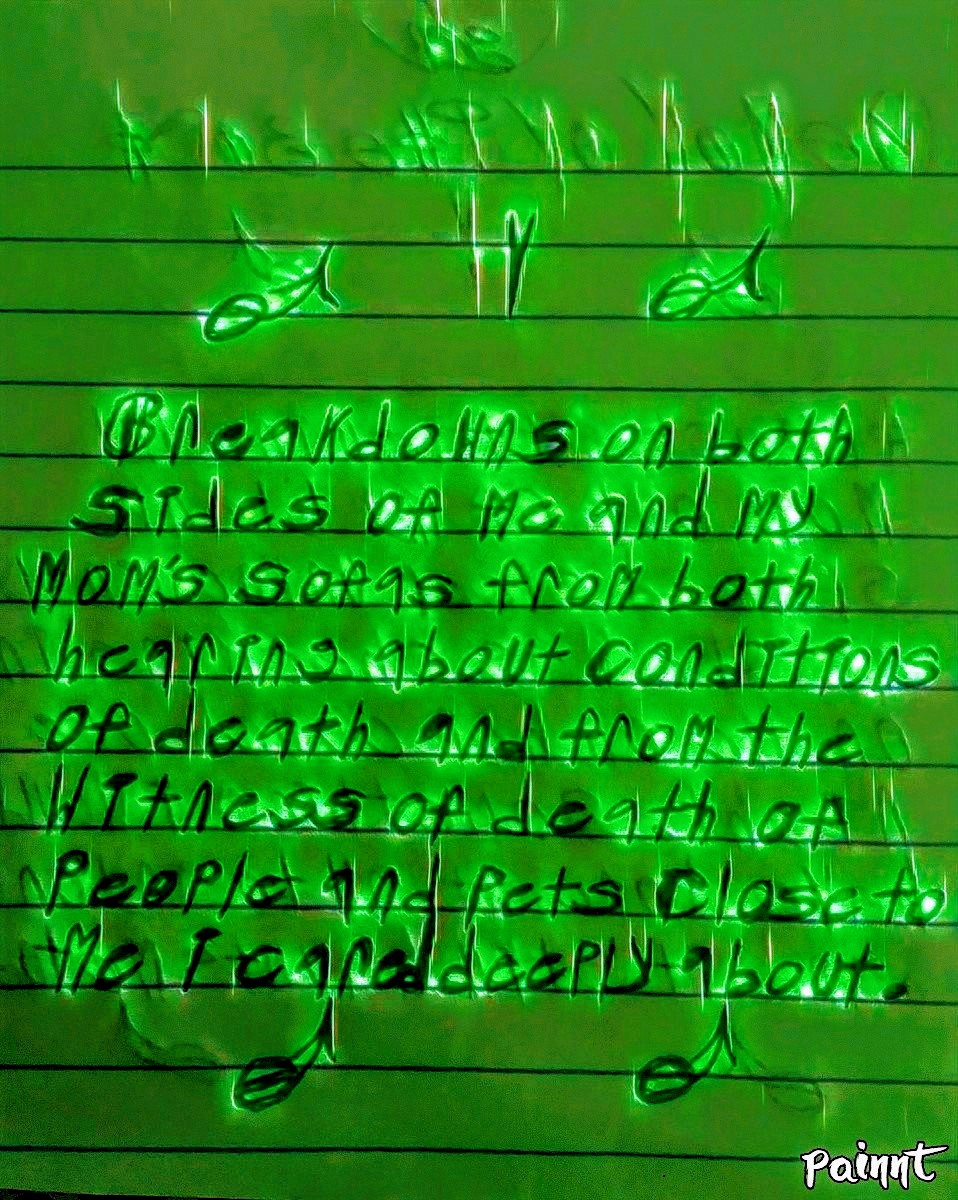 Breakdowns on both
sides of me and my
Mom's sofas from both
hearing about conditions
of death and from the
Witness of death of
People and Pets Close to
Me I cared deeply about.
Painnt